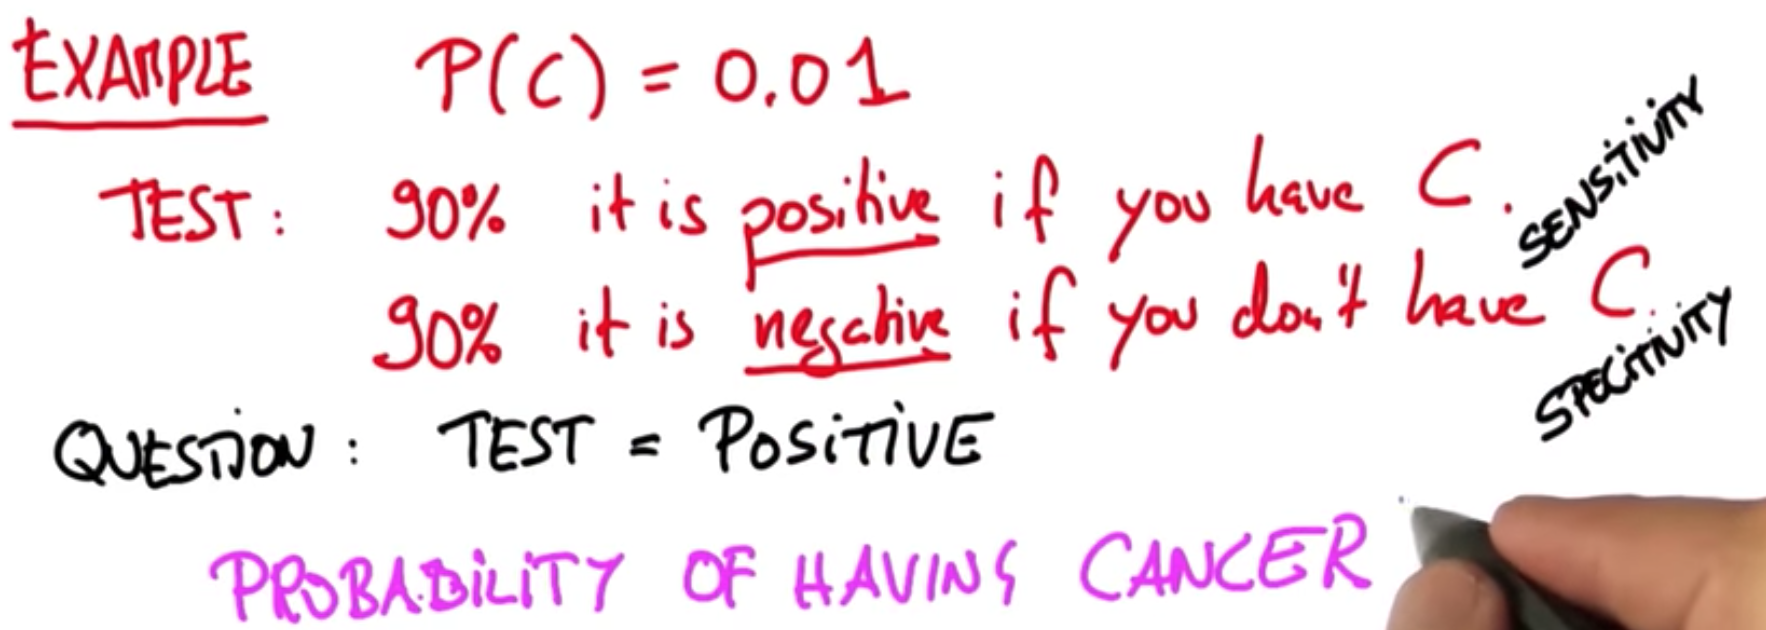 EXAMPLE P(C) = 0.01
TEST: 90% it is positive if you have C. SENSITIVITY
90% it is negative if you don't have C. SPECITIVITY
QUESTION: TEST = POSITIVE
PROBABILITY OF HAVING CANCER